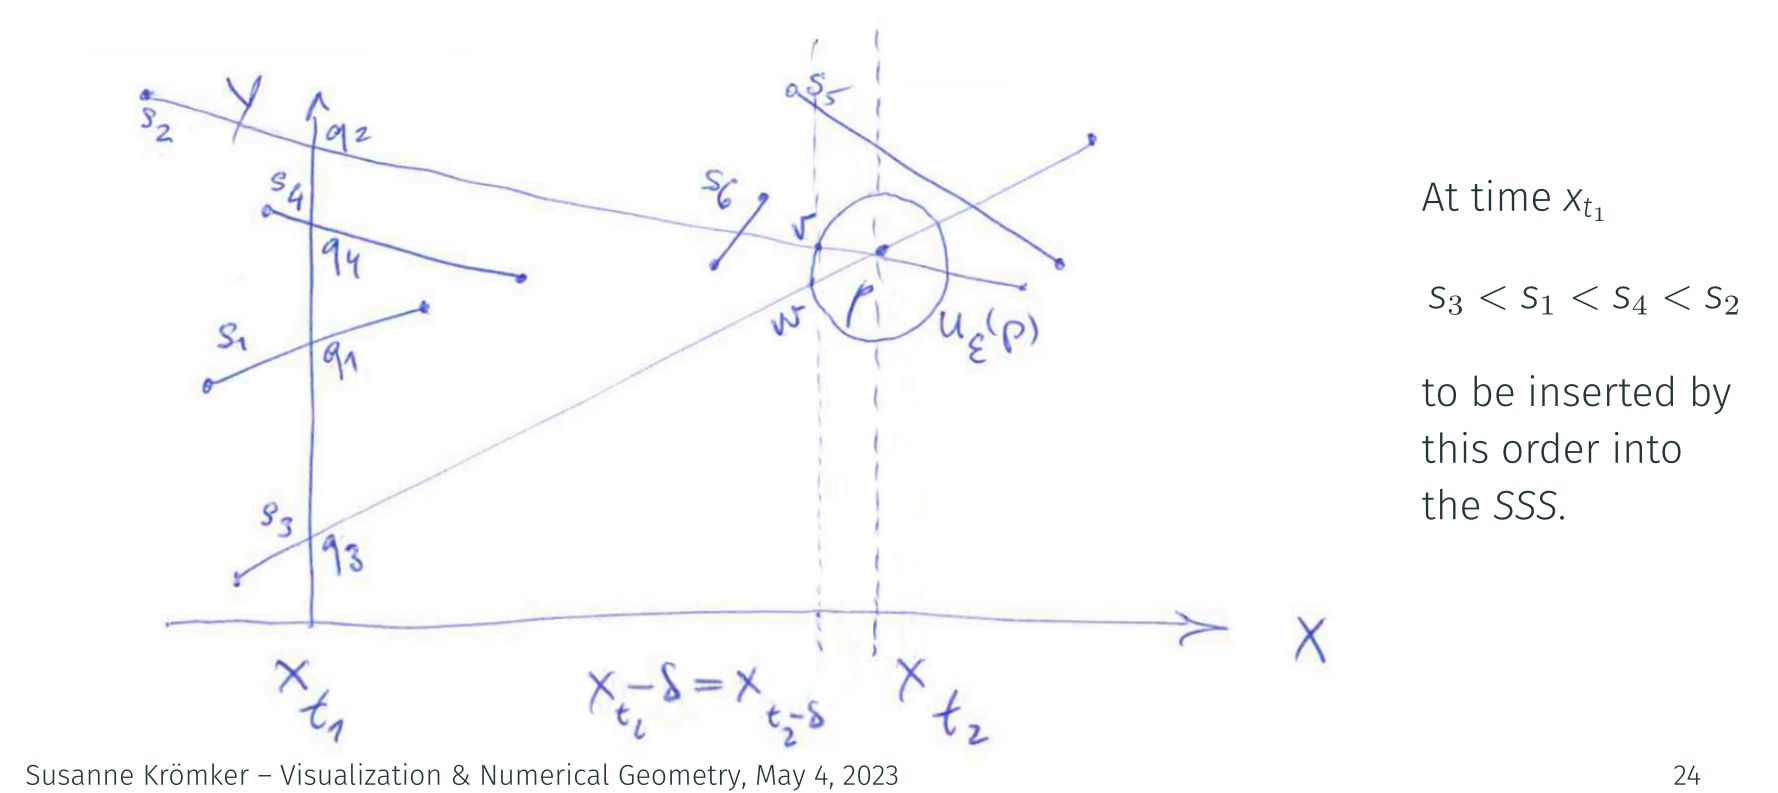 s₂
y
q₂
s₄
q₄
s₁
q₁
s₃
q₃
s₅
s₆
v
w
p
U_ε(p)
x
x_{t₁}
x_{t₂}-δ = x_{t₂-δ}
x_{t₂}
At time x_{t₁}
s₃ < s₁ < s₄ < s₂
to be inserted by
this order into
the SSS.
Susanne Krömker – Visualization & Numerical Geometry, May 4, 2023
24